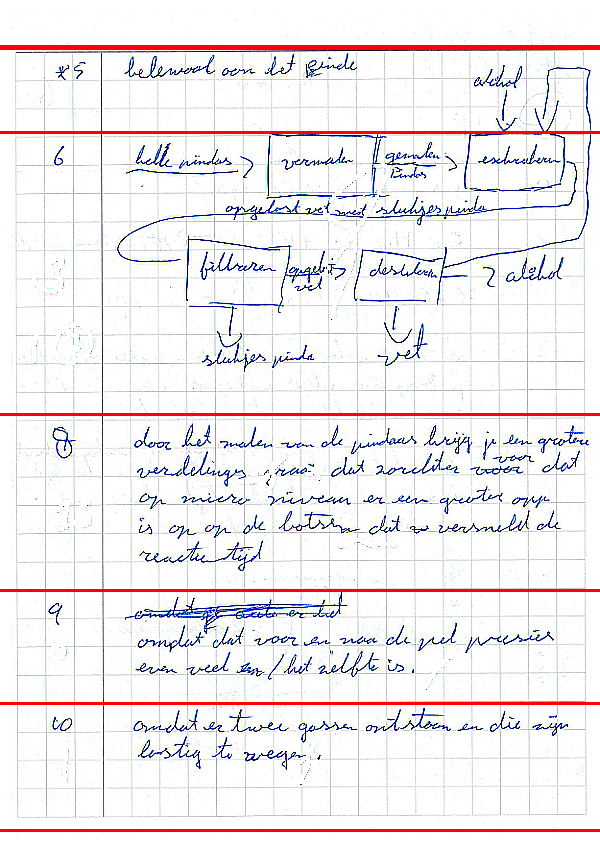 *5 helemaal aan het einde
alcohol
6 hele pindas vermalen gemalen extraheren
Pindas
opgelost vet met stukjes pinda
filtreren opgelost destileren alcohol
vet
stukjes pinda vet
8 door het malen van de pindaas krijg je een grotere
verdelinges graat dat zorchter voor dat
op micro niveau er een groter opp
is op op de botsen dat versneld de
reactie tijd
9 omdat er het
omdat dat voor en naa de pijl presies
even veel / het zelfte is.
10 omdat er twee gassen ontstaan en die zijn
lastig te wegen.